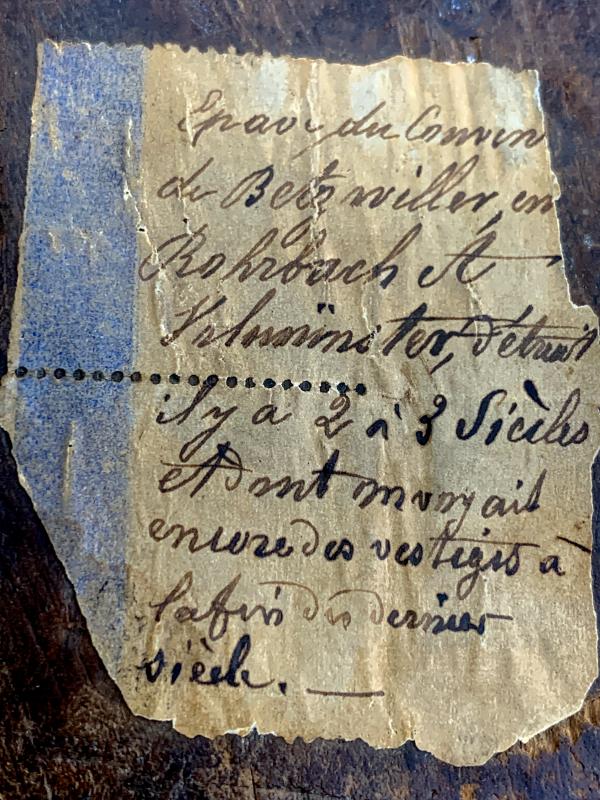 Epave du Couven
de Betzwiller, en
Rohrbach et
Kelmünster, détruit
il y a 2 à 3 Siècles
et dont on voyait
encore des vestiges à
la fin du dernier
siècle. —